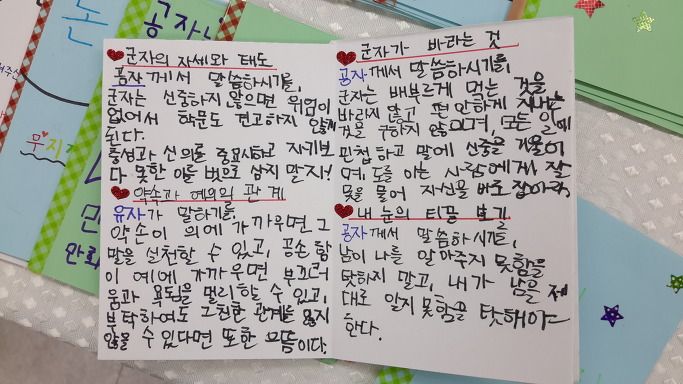 군자의 자세와 태도
공자께서 말씀하시기를,
군자는 신중하지 않으면 위엄이
없어서 학문도 견고하지 않게
된다.
충성과 신의를 중요시하고 자기보
다 못한 이를 벗으로 삼지 말지!
약속과 예의의 관계
유자가 말하기를,
약손이 의에 가까우면 그
말을 실천할 수 있고, 공손함
이 예에 가까우면 부끄러
움과 욕됨을 멀리할 수 있고,
부탁하여도 그친한 관계를 잃지
않을 수 있다면 또한 으뜸이다.
군자가 바라는 것
공자께서 말씀하시기를,
군자는 배부르게 먹는 것을
바라지 않고 편안하게 지내는
것을 구하지 않으며, 모든 일에
민첩하고 말에 신중을 기울이
며, 도를 아는 사람에게 잘
못을 물어 자신을 바로 잡아라.
내 눈의 티끌 보기
공자께서 말씀하시기를,
남이 나를 알아주지 못함을
탓하지 말고, 내가 남을 제
대로 알지 못함을 탓해야
한다.
논
공자
무지
만